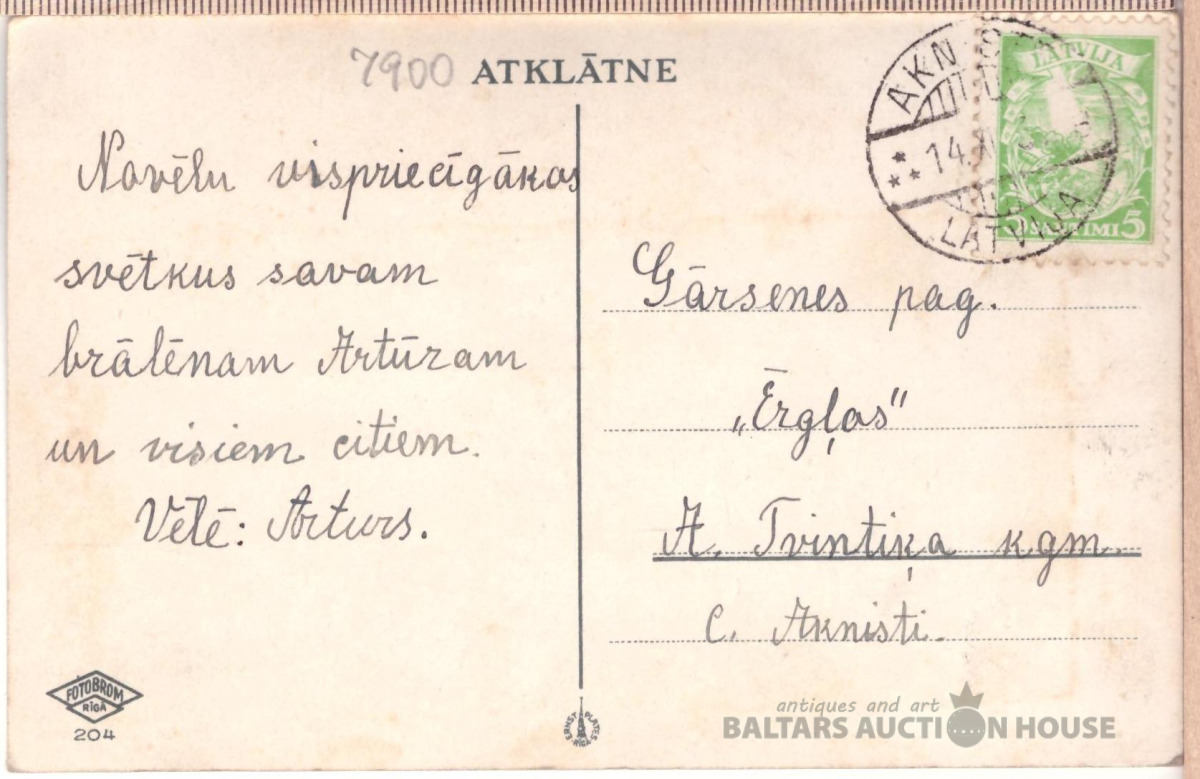 7900 ATKLĀTNE
Novēlu vispriecīgākos
svētkus savam
brālēnam Artūram
un visiem citiem.
Vēlē: Arturs.
FOTOBROM
RĪGA
204
ERNST PLATES
RĪGA
LATVIJA
5 SANTIMI 5
AKNISTE
14.
LATVIJA
Gārsenes pag.
„Ērgļos"
A. Tvintiķa kgm.
c. Aknisti.
antiques and art
BALTARS AUCTION HOUSE